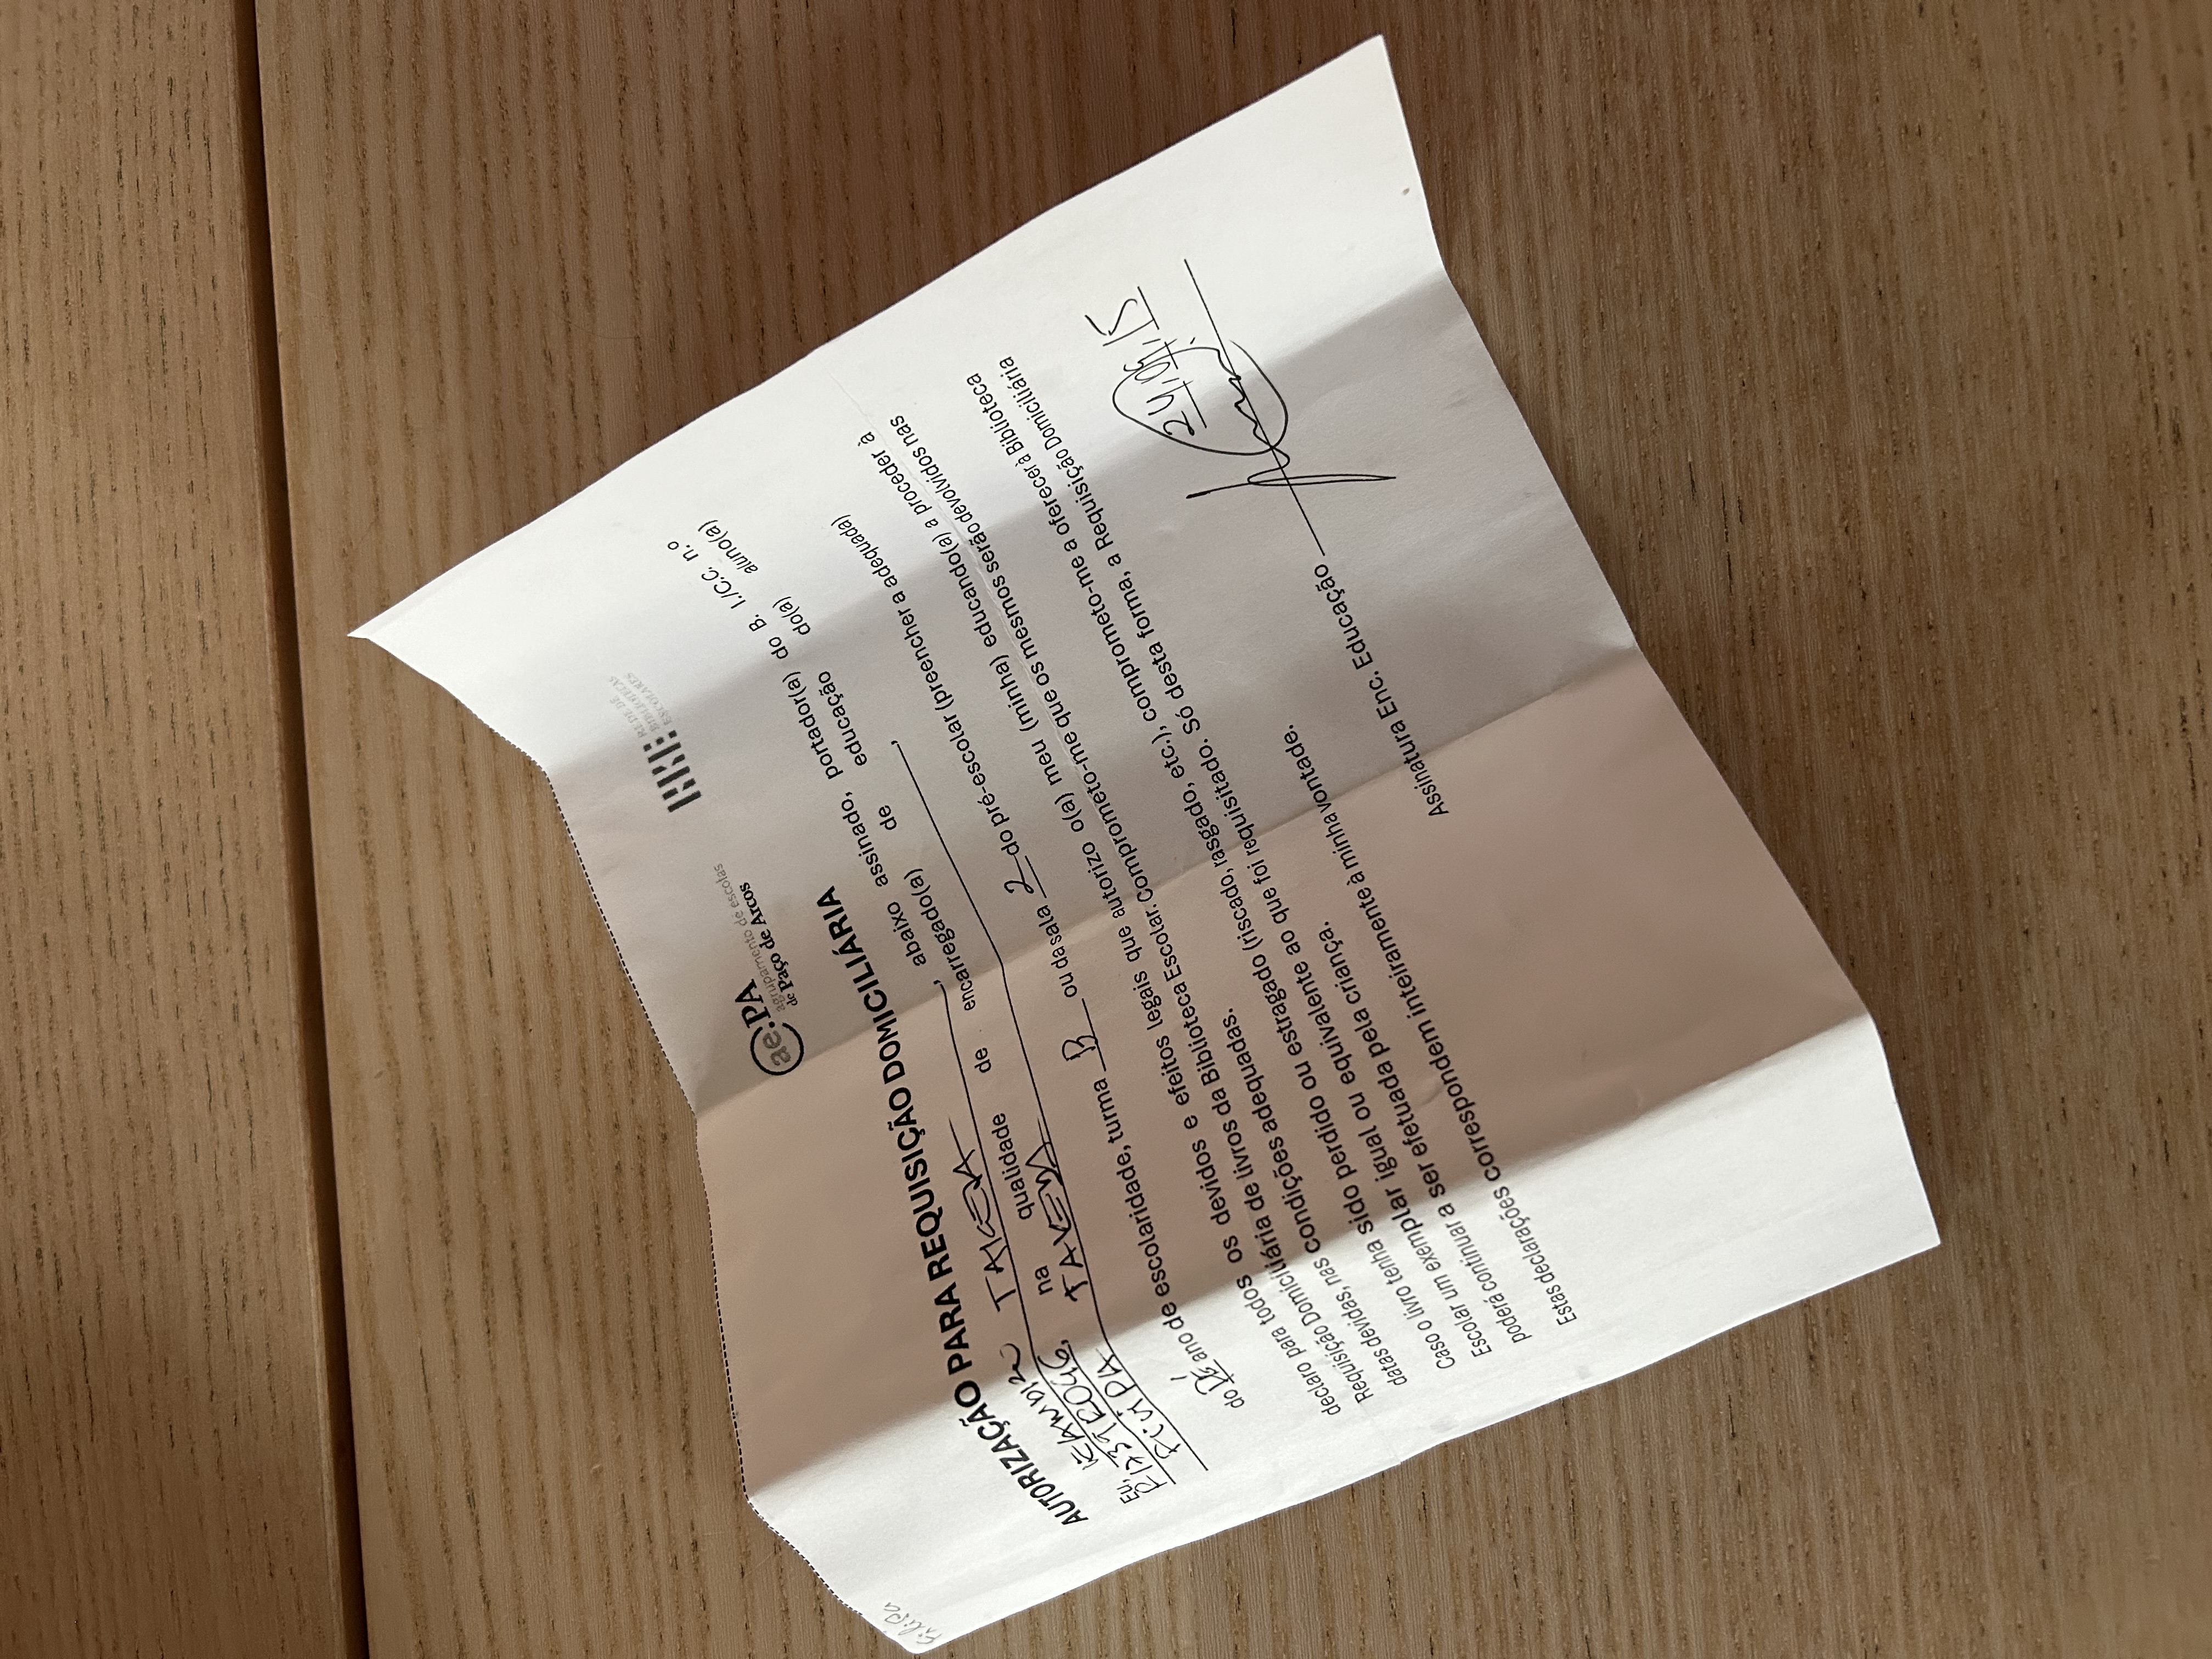 Filipa
ae.PA
agrupamento de escolas
de Paço de Arcos
RBE
REDE DE
BIBLIOTECAS
ESCOLARES
AUTORIZAÇÃO PARA REQUISIÇÃO DOMICILIÁRIA
Eu, TAKEDA, abaixo assinado, portador(a) do B. I./C.C. n.º
na qualidade de encarregado(a) de educação do(a) aluno(a)
FILIPA TAKEDA,
do PÉ ano de escolaridade, turma B ou da sala 2 do pré-escolar (preencher a adequada)
declaro para todos os devidos e efeitos legais que autorizo o(a) meu (minha) educando(a) a proceder à
Requisição Domiciliária de livros da Biblioteca Escolar. Comprometo-me que os mesmos serão devolvidos nas
datas devidas, nas condições adequadas.
Caso o livro tenha sido perdido ou estragado (riscado, rasgado, etc.), comprometo-me a oferecer à Biblioteca
Escolar um exemplar igual ou equivalente ao que foi requisitado. Só desta forma, a Requisição Domiciliária
poderá continuar a ser efetuada pela criança.
Estas declarações correspondem inteiramente à minha vontade.
24,09,15
Assinatura Enc. Educação